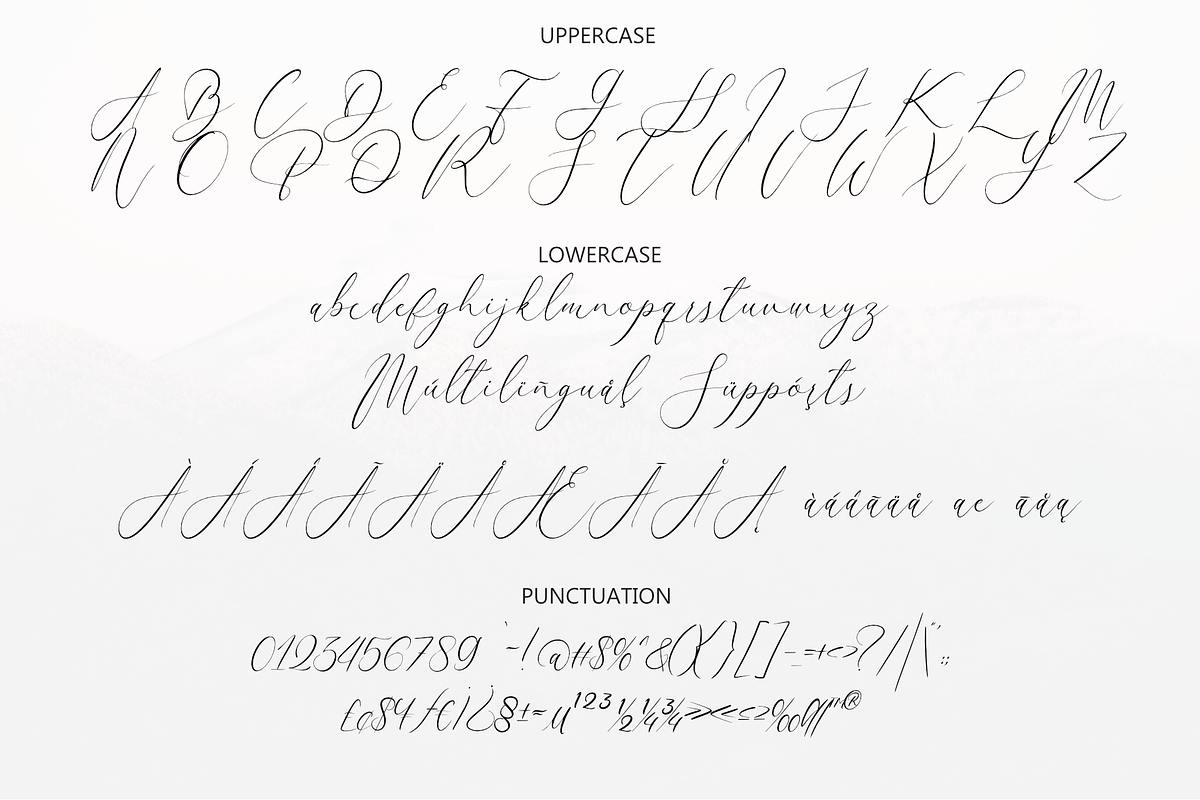 UPPERCASE
A B C D E F G H I J K L M
N O P Q R S T U V W X Y Z
LOWERCASE
abcdefghijklmnopqrstuvwxyz
Múltilïñguåļ Süppóŗts
À Á Â Ã Ä Å Æ Ā Ă Ą àáâãäå æ āăą
PUNCTUATION
0123456789 `~!@#$%^&(){}[]-_=+<>?/|\"',.:;